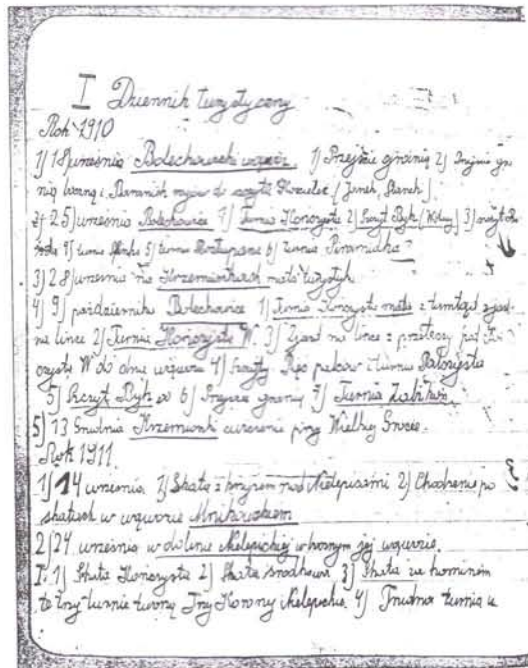 I Dziennik turystyczny
Rok 1910
1) 18 września Bolechowski wąwóz. 1) Przejście granią 2) Przejście gra-
nią boczną i Baranich rogów do szczytu (Janek, Stanek)
2) 25 września Bolechowice 1) Turnia Konczysta 2) Szczyt Byk (Wolny) 3) szczyt
4) turnia 5) turnia 6) turnia Piramidka
3) 28 września na Krzemionkach mała turystyk.
4) 9) października Bolechowice 1) Turnia Konczysta mała z tamtąd zjazd
na lince 2) Turnia Konczysta W. 3) Zjazd na lince z przełęczy pod Kon
czystą W do dna wąwozu 4) szczyty: palców i turnia
5) Szczyt Byk 6) Przejście granią 7) Turnia
5) 13 Grudnia Krzemionki ćwiczenie przy Wielkiej Grocie.
Rok 1911
1) 14 września. 1) Skała z krzyżem nad Nielepicami 2) Chodzenie po
skałach w wąwozie Mnikowskiem
2) 24 września w dolinie Nielepickiej w bocznym jej wąwozie
I. 1) Skała Konczysta 2) Skała środkowa 3) Skała za kominem
te trzy turnie tworzą Trzy Korony Nielepickie. 4) Trudna turnia w